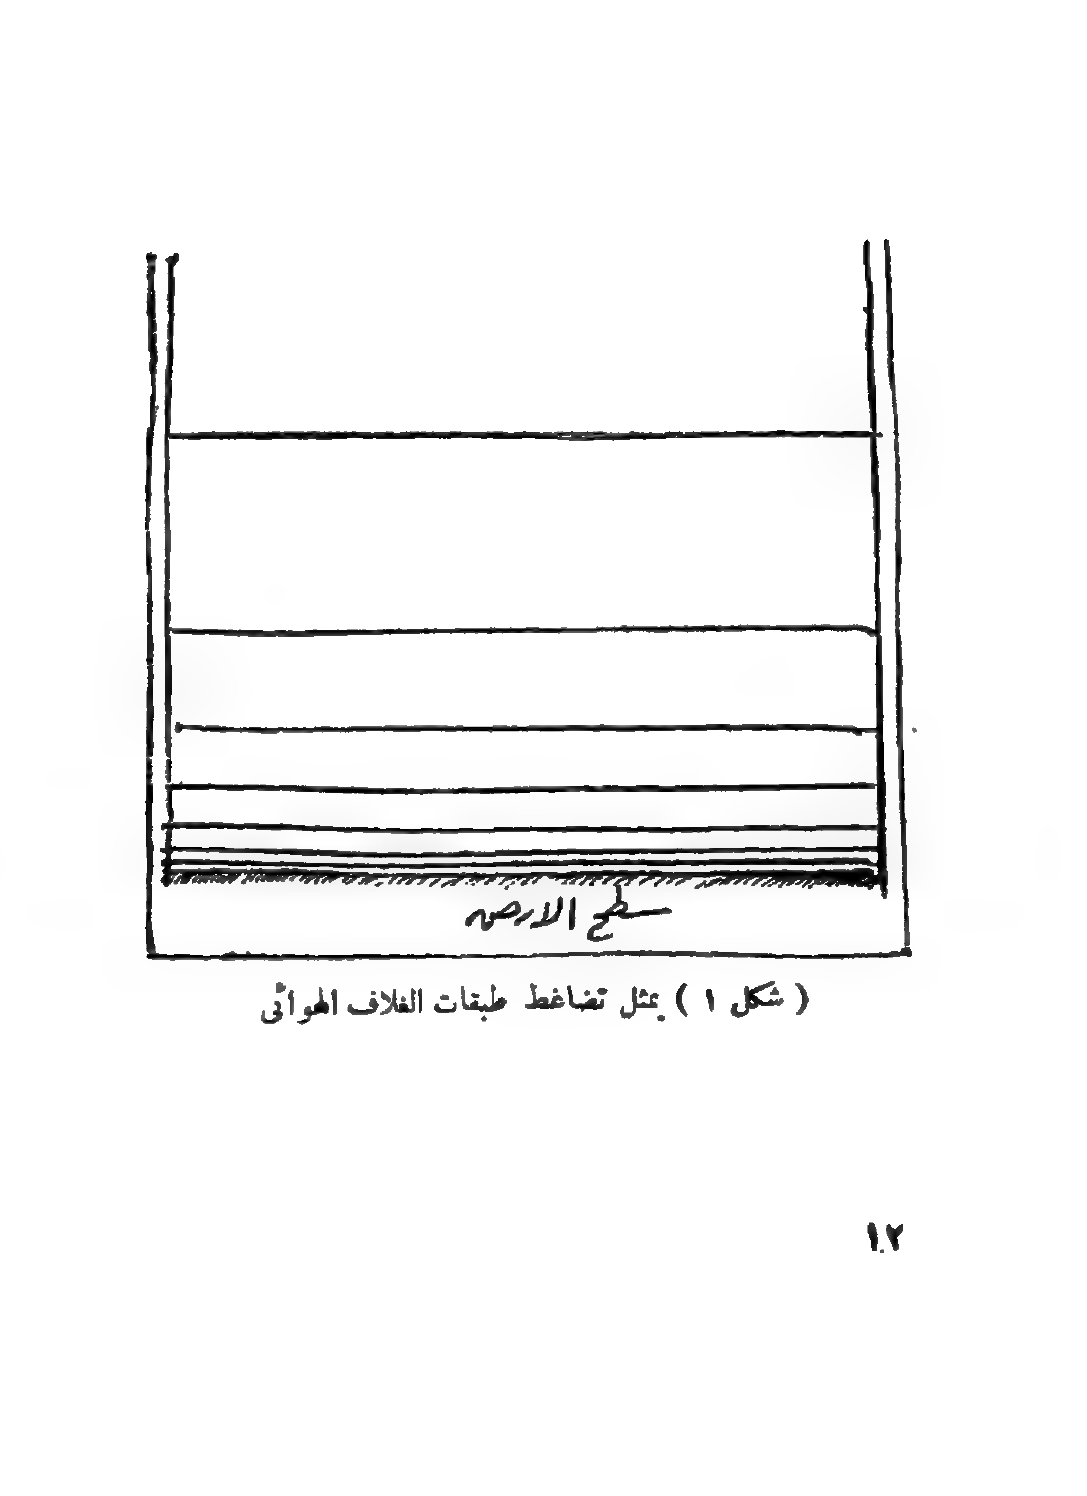 سطح الارض
( شكل ١ ) يمثل تضاغط طبقات الغلاف الهوائى
١٢